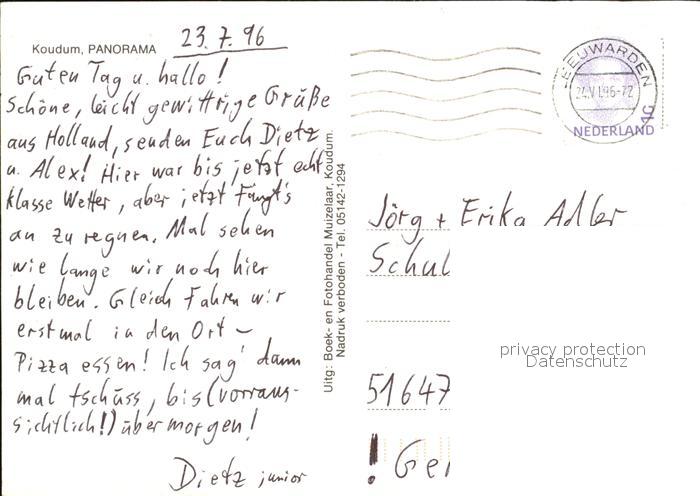 Koudum, PANORAMA
23.7.96
Guten Tag u. hallo!
Schöne, leicht gewittrige Grüße
aus Holland, senden Euch Dietz
u. Alex! Hier war bis jetzt echt
klasse Wetter, aber jetzt fängt's
an zu regnen. Mal sehen
wie lange wir noch hier
bleiben. Gleich Fahren wir
erstmal in den Ort –
Pizza essen! Ich sag' dann
mal tschüss, bis (vorraus-
sichtlich!) übermorgen!
Dietz junior
Uitg: Boek- en Fotohandel Muizelaar, Koudum.
Nadruk verboden - Tel. 05142-1294
LEEUWARDEN
NEDERLAND
Jörg + Erika Adler
Schul
51647
! Ger
privacy protection
Datenschutz